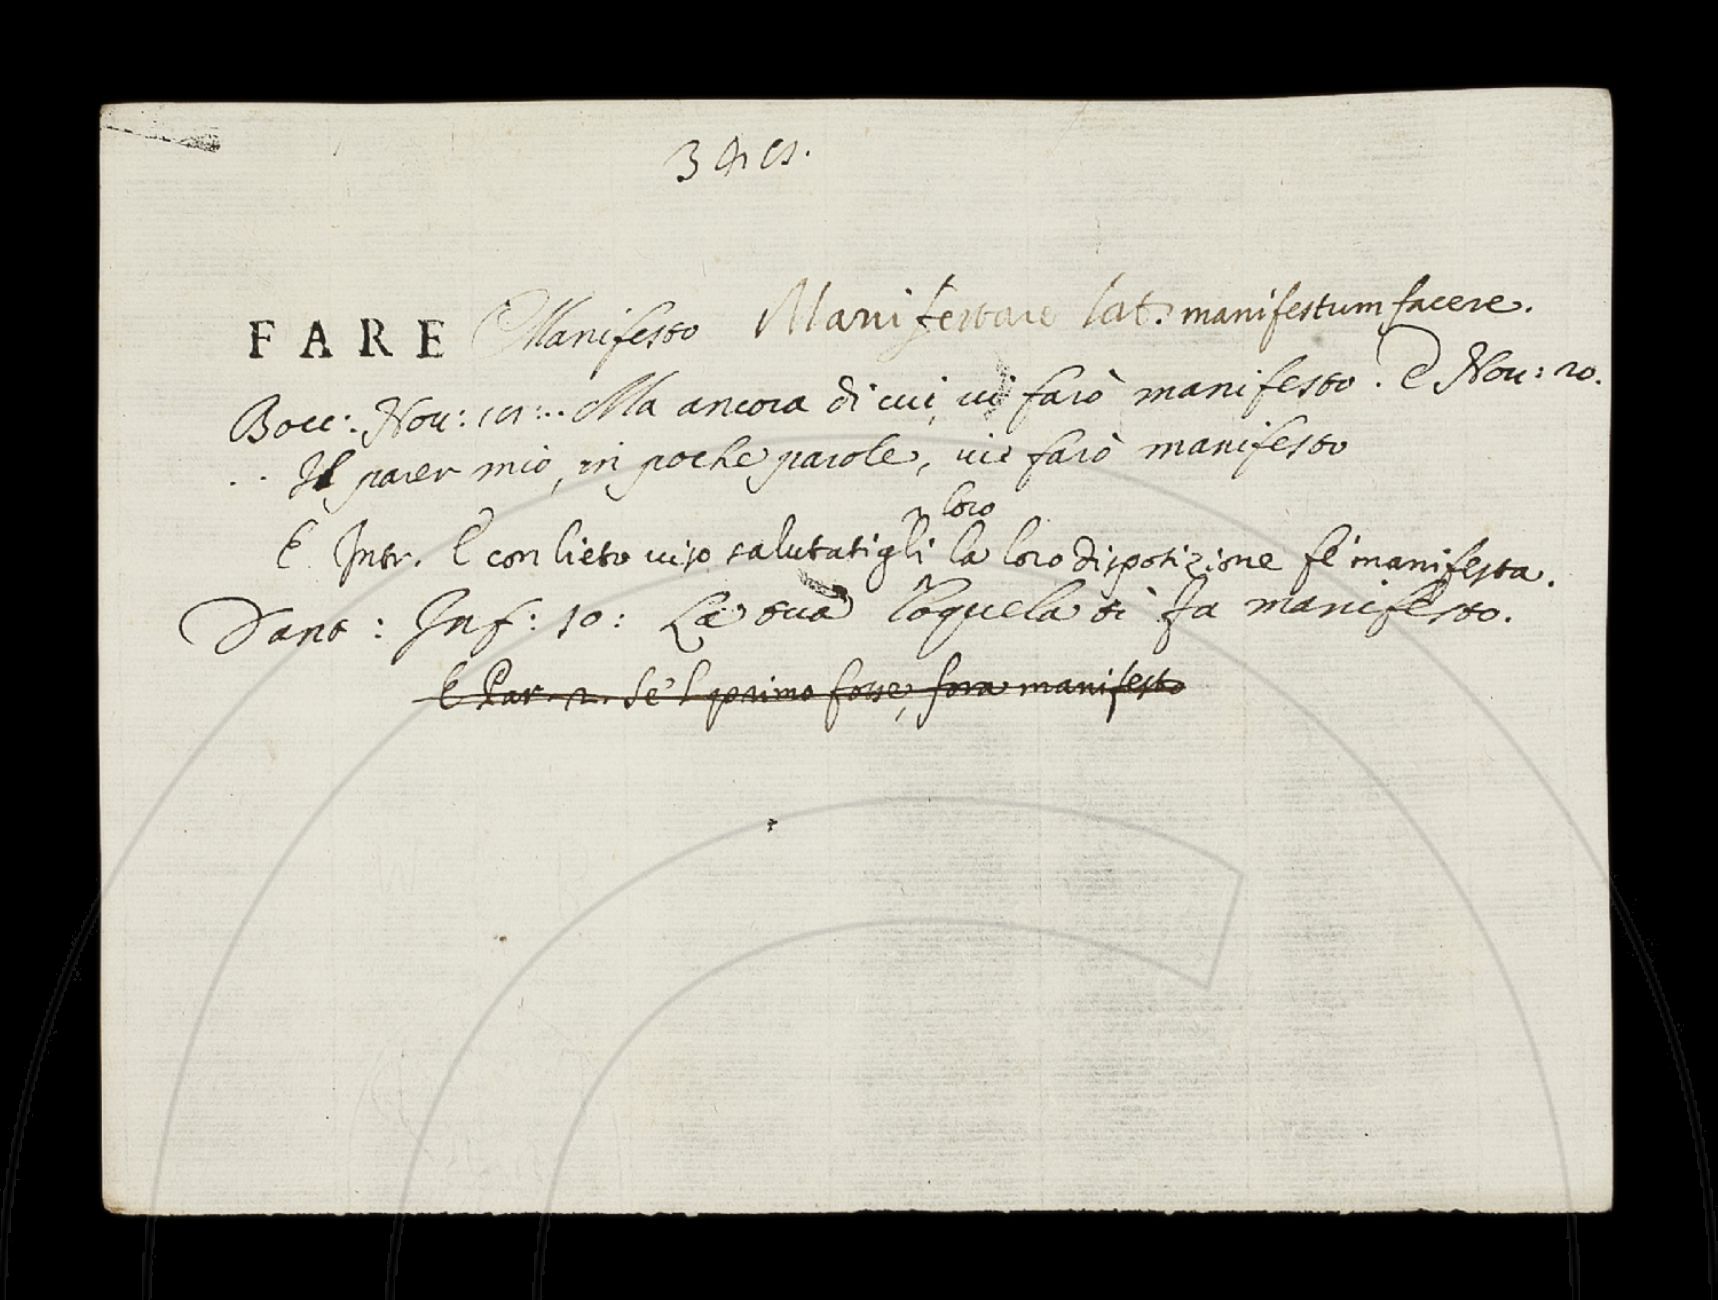 FARE Manifesto Manifestare lat. manifestum facere.
Bocc: Nov: ... Ma ancora di cui, vi farò manifesto. E Nov: 20.
.. Il parer mio, in poche parole, vi farò manifesto
loro
E Intr. E con lieto viso salutatigli la loro disposizione fe' manifesta.
Dant: Inf: 10: La tua loquela ti fa manifesto.
E Par. 2. Se 'l primo fosse, fora manifesto